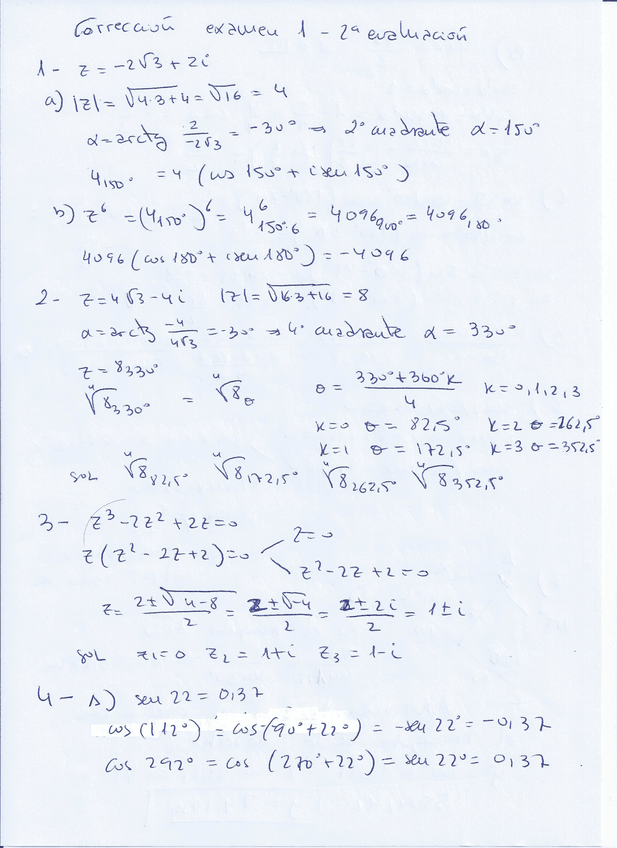 Corrección examen 1 - 2ª evaluación
1 - z = -2√3 + 2i
a) |z| = √(4·3+4) = √16 = 4
α = arctg 2/(-2√3) = -30° ⇒ 2º cuadrante α = 150°
4₁₅₀° = 4 (cos 150° + i sen 150°)
b) z⁶ = (4₁₅₀°)⁶ = 4⁶₁₅₀°·₆ = 4096₉₀₀° = 4096₁₈₀°
4096 (cos 180° + i sen 180°) = -4096
2 - z = 4√3 - 4i |z| = √(16·3+16) = 8
α = arctg -4/(4√3) = -30° ⇒ 4º cuadrante α = 330°
z = 8₃₃₀°
⁴√8₃₃₀° = ⁴√8_θ θ = (330° + 360°K)/4 K = 0,1,2,3
K=0 θ = 82,5° K=2 θ = 262,5°
K=1 θ = 172,5° K=3 θ = 352,5°
sol ⁴√8 82,5° ⁴√8 172,5° ⁴√8 262,5° ⁴√8 352,5°
3 - z³ - 2z² + 2z = 0
z (z² - 2z + 2) = 0 z = 0
z² - 2z + 2 = 0
z = (2 ± √(4-8))/2 = (2 ± √-4)/2 = (2 ± 2i)/2 = 1 ± i
sol z₁ = 0 z₂ = 1+i z₃ = 1-i
4 - a) sen 22 = 0,37
cos (112°) = cos (90° + 22°) = -sen 22° = -0,37
cos 292° = cos (270° + 22°) = sen 22° = 0,37